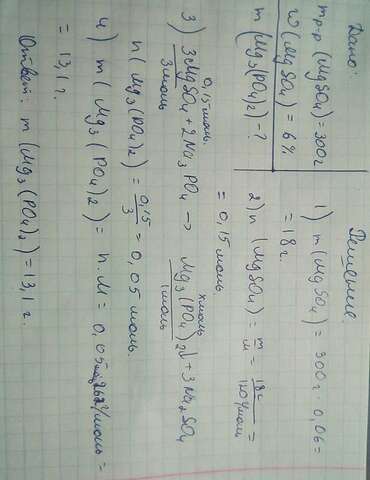 Дано:
mр-р (MgSO4) = 300г
w (MgSO4) = 6%
m (Mg3(PO4)2) - ?
Решение.
1) m (MgSO4) = 300г · 0,06 =
= 18 г.
2) n (MgSO4) = m/M = 18г/120г/моль =
= 0,15 моль
0,15 моль. x моль
3) 3MgSO4 + 2Na3PO4 → Mg3(PO4)2↓ + 3Na2SO4
3 моль 1 моль
n (Mg3(PO4)2) = 0,15/3 = 0,05 моль.
4) m (Mg3(PO4)2) = n·M = 0,05моль·262г/моль =
= 13,1 г.
Ответ: m (Mg3(PO4)2) = 13,1 г.